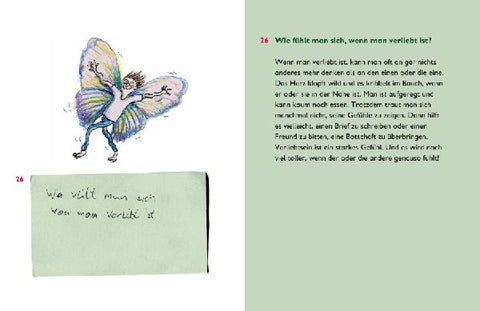 26
Wo vült mun sich
wau man verlibt ist
26 Wie fühlt man sich, wenn man verliebt ist?
Wenn man verliebt ist, kann man oft an gar nichts
anderes mehr denken als an den einen oder die eine.
Das Herz klopft wild und es kribbelt im Bauch, wenn
er oder sie in der Nähe ist. Man ist aufgeregt und
kann kaum noch essen. Trotzdem traut man sich
manchmal nicht, seine Gefühle zu zeigen. Dann hilft
es vielleicht, einen Brief zu schreiben oder einen
Freund zu bitten, eine Botschaft zu überbringen.
Verliebtsein ist ein starkes Gefühl. Und es wird noch
viel toller, wenn der oder die andere genauso fühlt!